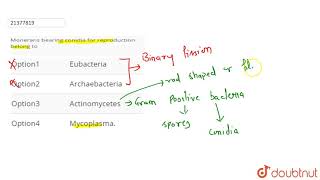 21377819
Monerans bearing conidia for reproduction
belong to
Option1 Eubacteria
Binary fission
Option2 Archaebacteria
rod shaped or
Option3 Actinomycetes
Gram Positive bacteria
Option4 Mycoplasma.
spores
conidia
doubtnut